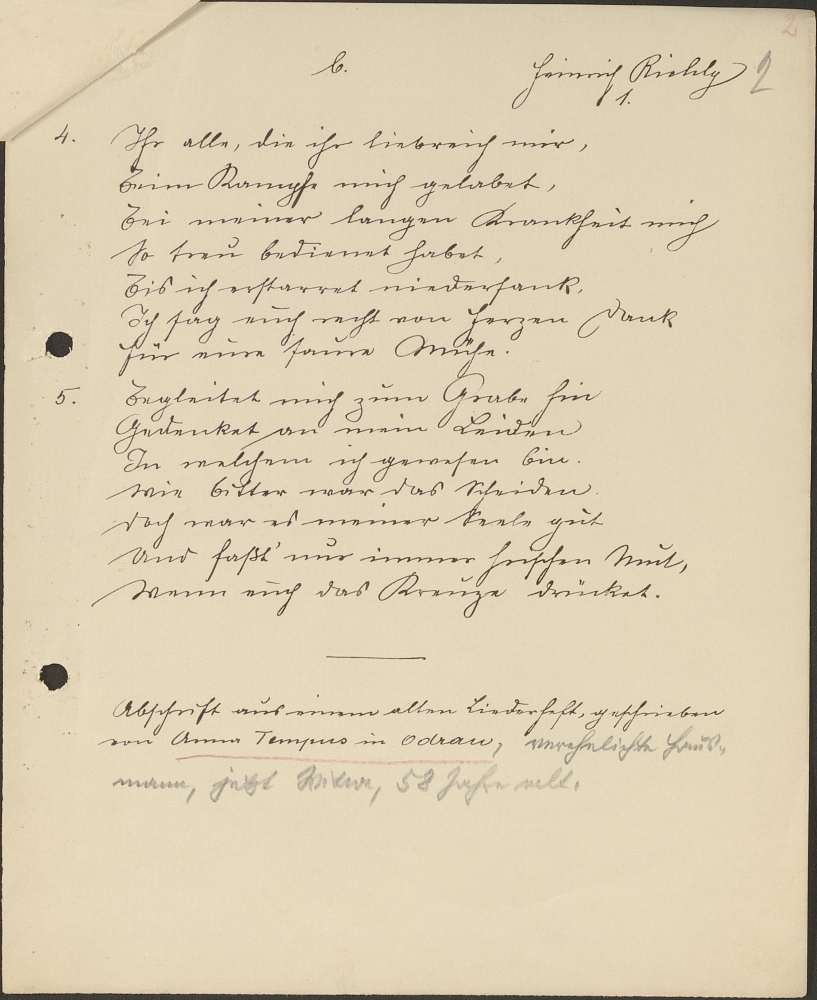 2
b.
Heinrich
2
1.
4. Ihr alle, die ihr liebreich mir,
Beim Kampfe mich gelabet,
Bei meiner langen Krankheit mich
So treu bedienet habet,
Bis ich erstarret niedersank,
Ich sag euch recht von Herzen Dank
Für eure saure Mühe.
5. Begleitet mich zum Grabe hin
Gedenket an mein Leiden
In welchem ich gewesen bin.
Wie bitter war das Scheiden.
Doch war es meiner Seele gut
Und faßt' nur immer frischen Mut,
Wenn euch das Kreuze drücket.
Abschrift aus einem alten Liederheft, geschrieben
von Anna Tempus in Odrau, verehelichte Haus-
mann, jetzt Witwe, 58 Jahre alt.